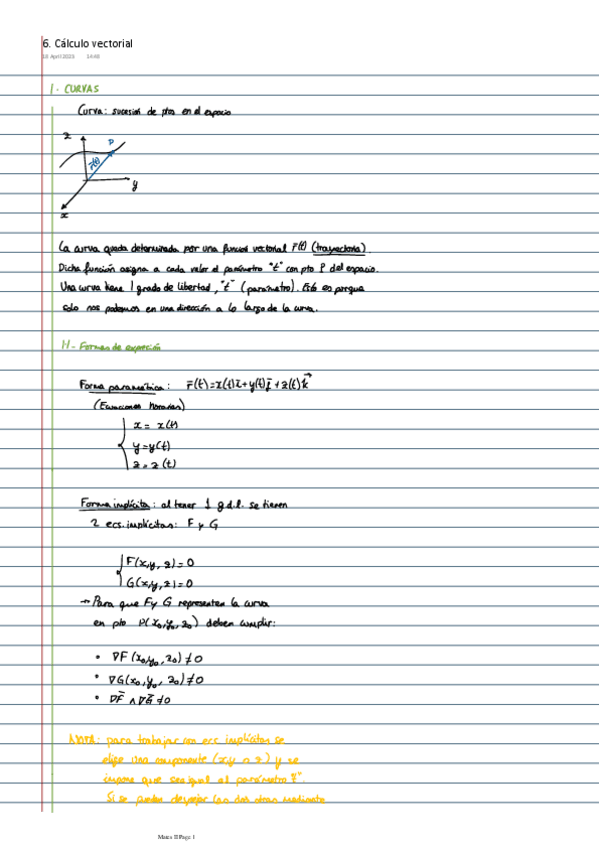 6. Cálculo vectorial
18 April 2023 14:48
1 - CURVAS
Curva: sucesión de ptos en el espacio
z
P
r̄(t)
y
x
La curva queda determinada por una función vectorial r̄(t) (trayectoria).
Dicha función asigna a cada valor el parámetro "t" con pto P del espacio.
Una curva tiene 1 grado de libertad, "t" (parámetro). Esto es porque
solo nos podemos en una dirección a lo largo de la curva.
1.1 - Formas de expresión
Forma paramétrica: r̄(t)=x(t)ī+y(t)j̄+z(t)k̄
(Ecuaciones horarias)
x = x(t)
y = y(t)
z = z(t)
Forma implícita: al tener 1 g.d.l. se tienen
2 ecs. implícitas: F y G
F(x,y,z)=0
G(x,y,z)=0
→ Para que F y G representen la curva
en pto P(x₀,y₀,z₀) deben cumplir:
• ∇F(x₀,y₀,z₀)≠0
• ∇G(x₀,y₀,z₀)≠0
• ∇F̄ ∧ ∇Ḡ ≠0
NOTA: para trabajar con ecs implícitas se
elige una componente (x,y o z) y se
impone que sea igual al parámetro "t".
Si se pueden despejar las dos otras mediante
Mates II Page 1